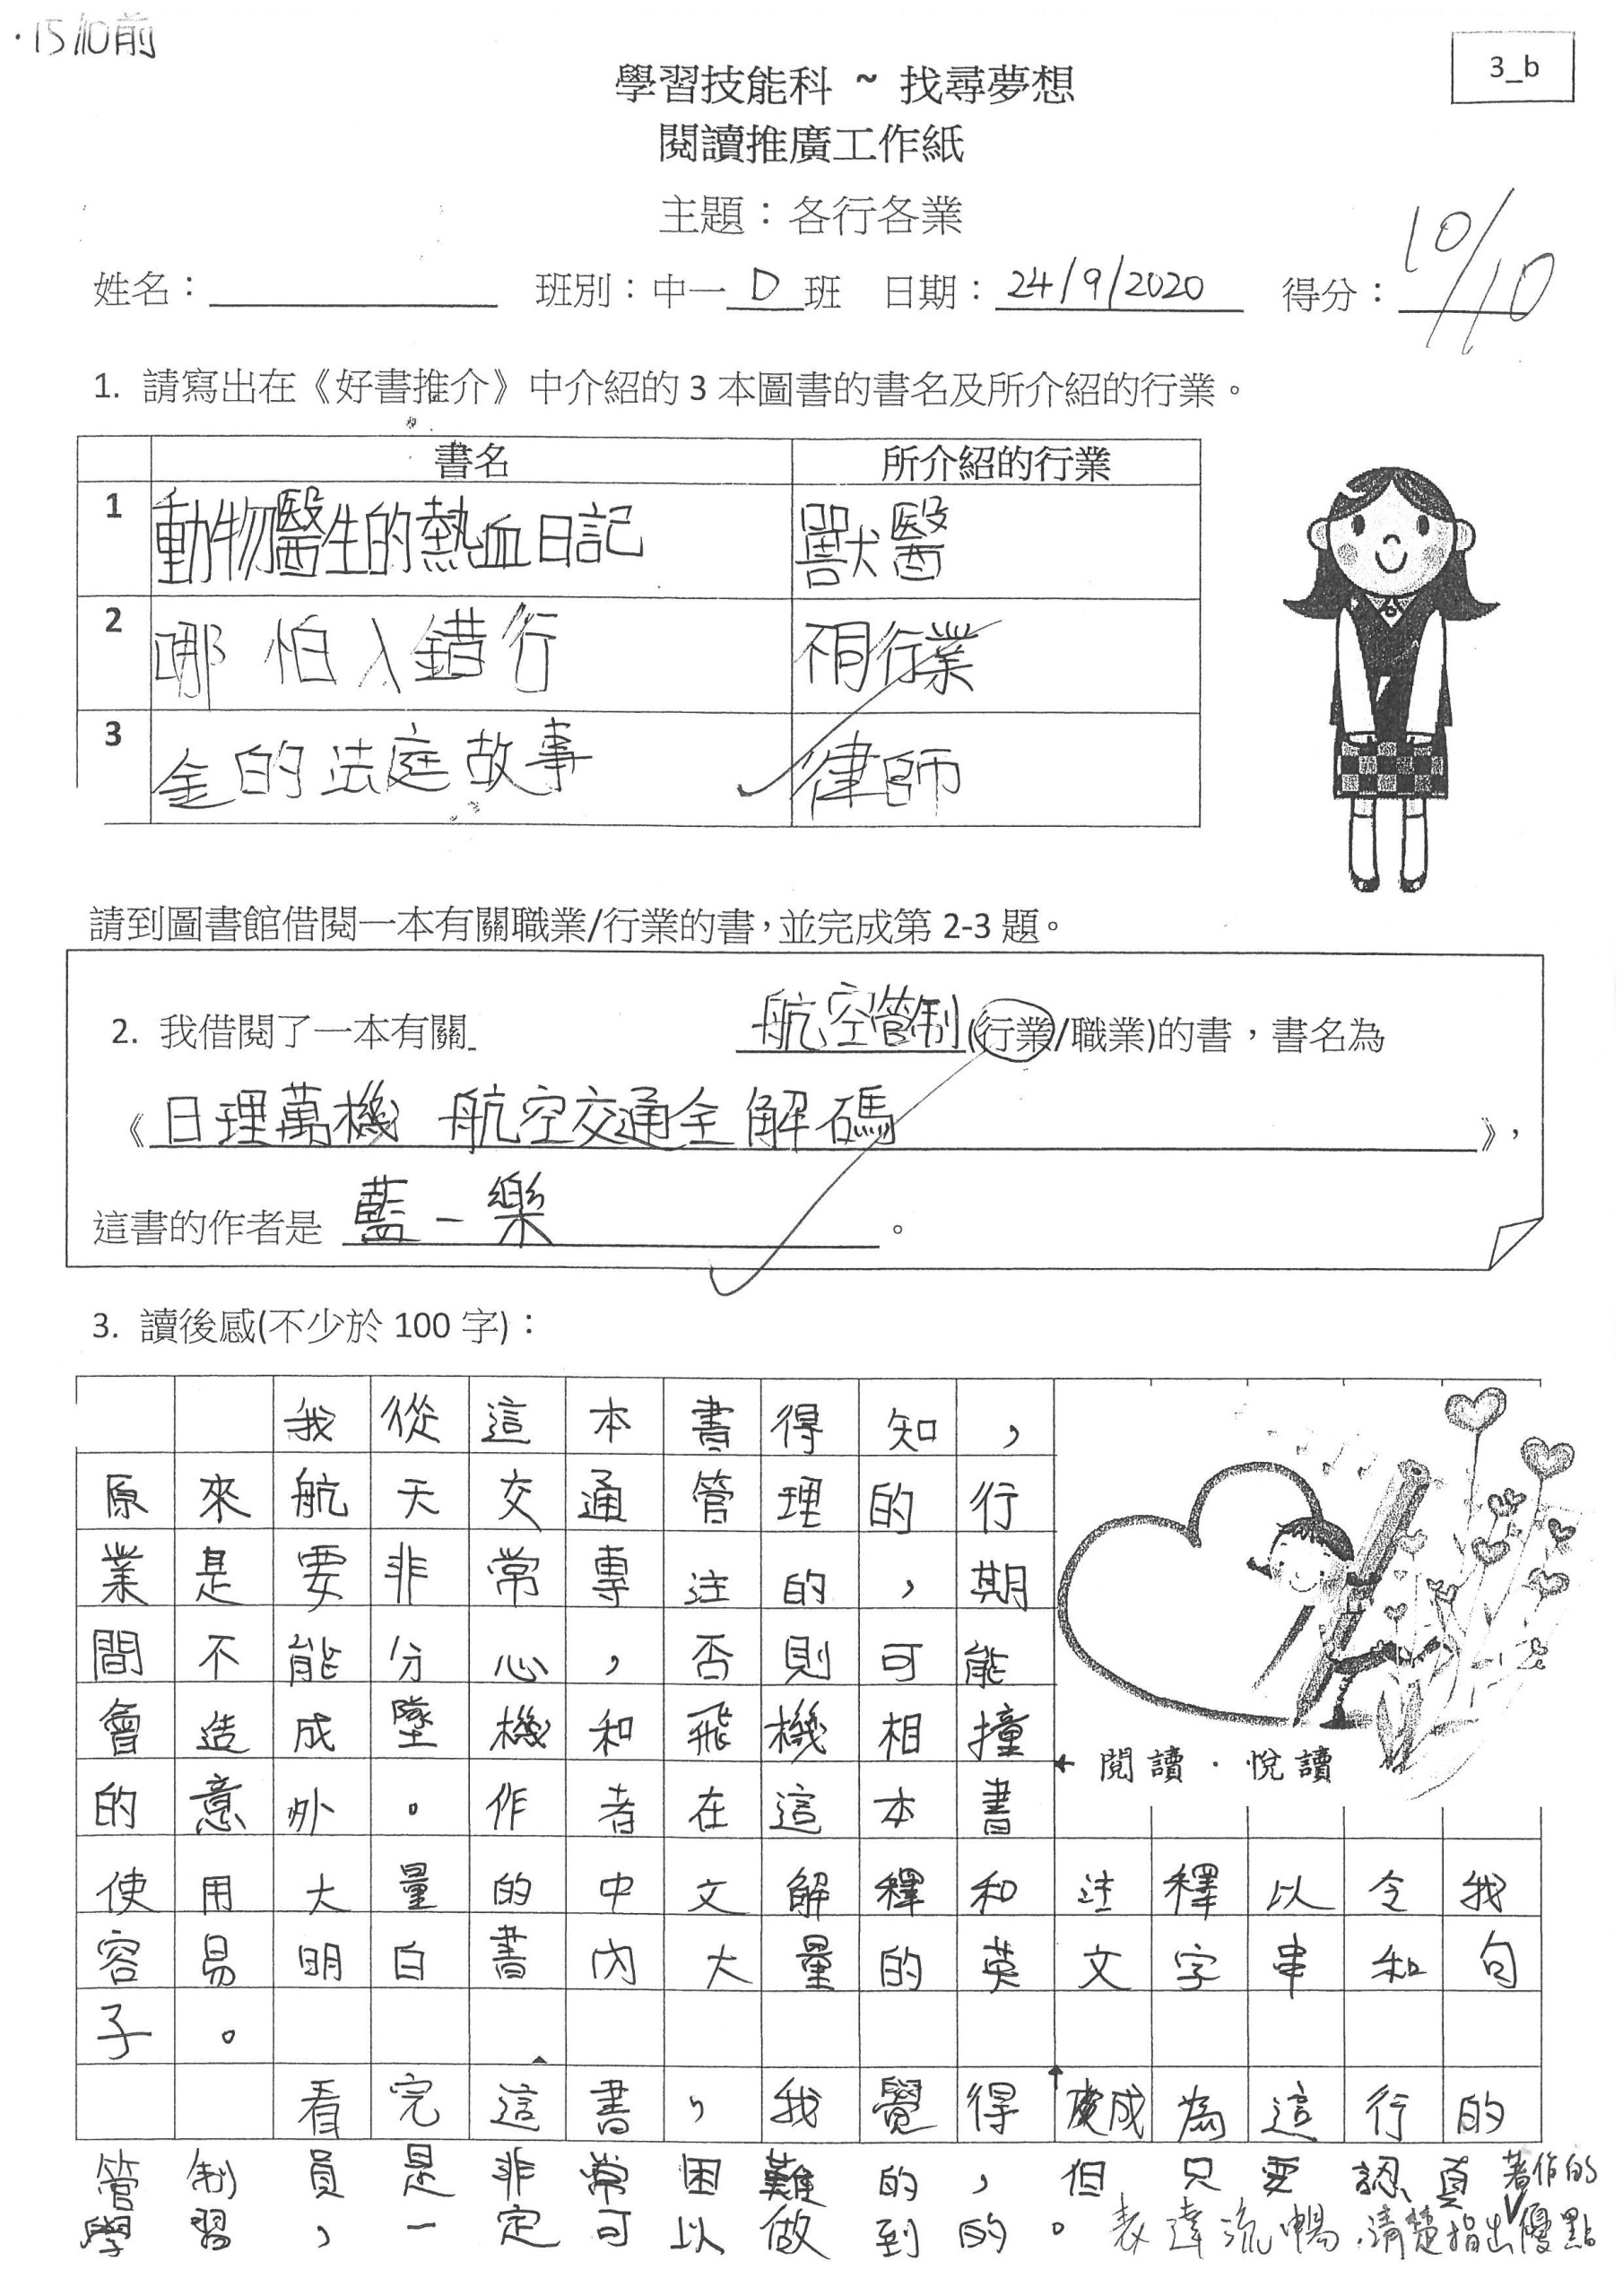 ·15/10前
3_b
學習技能科 ~ 找尋夢想
閱讀推廣工作紙
主題：各行各業
姓名： 班別：中一 D 班 日期：24/9/2020 得分：10/10
1. 請寫出在《好書推介》中介紹的 3 本圖書的書名及所介紹的行業。
書名 所介紹的行業
1 動物醫生的熱血日記 獸醫
2 哪怕入錯行 不同行業
3 金的法庭故事 律師
請到圖書館借閱一本有關職業/行業的書，並完成第 2-3 題。
2. 我借閱了一本有關 航空管制(行業/職業)的書，書名為
《日理萬機 航空交通全解碼》，
這書的作者是 藍一樂。
3. 讀後感(不少於 100 字)：
我從這本書得知，
原來航天交通管理的行
業是要非常專注的，期
間不能分心，否則可能
會造成墜機和飛機相撞
閱讀·悅讀
的意外。作者在這本書
使用大量的中文解釋和注釋以令我
容易明白書內大量的英文字串和句
子。
看完這書，我覺得成為這行的
管制員是非常困難的，但只要認真
學習，一定可以做到的。
表達流暢，清楚指出著作的優點